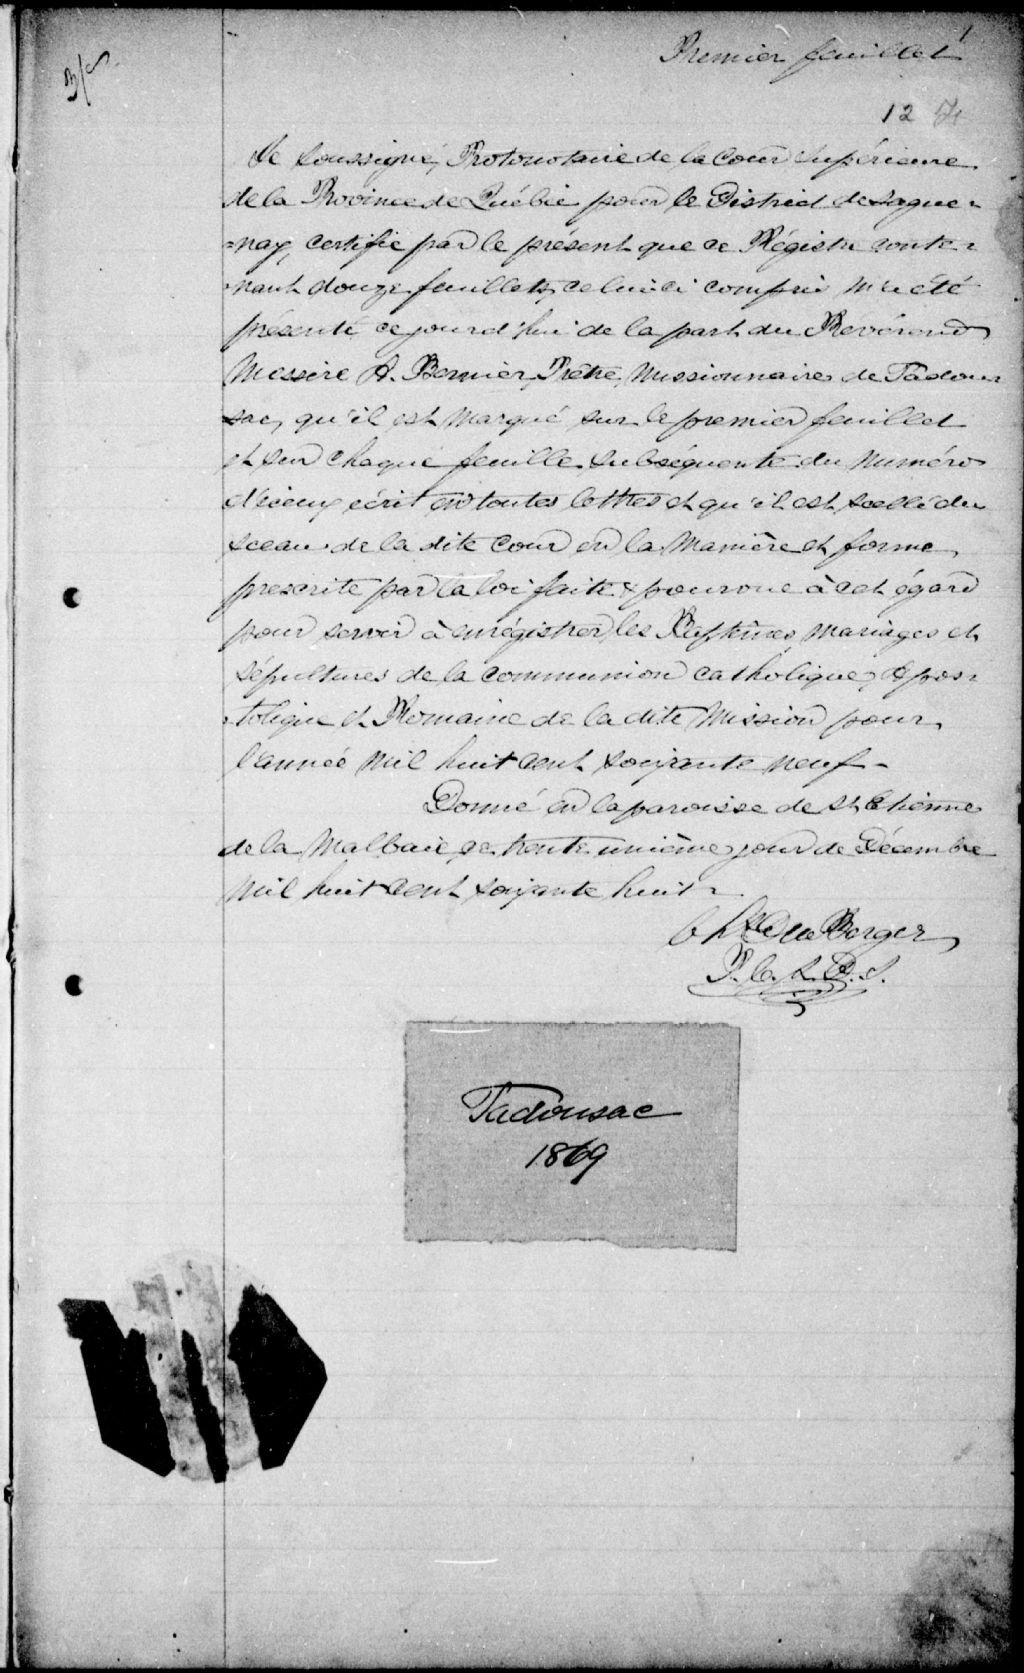 Premier feuillet
12 f
Je soussigné, Protonotaire de la Cour Supérieure
de la Province de Québec pour le District de Sague-
-nay, certifie par le présent que ce Régistre conte-
-nant douze feuillets, celui ci compris m'a été
présenté ce jourd'hui de la part du Révérend
Messire A. Bernier, Prêtre, Missionnaire de Tadous-
sac, qu'il est marqué sur le premier feuillet
et sur chaque feuille subséquente du numéro
d'iceux écrit en toutes lettres et qu'il est scellé du
sceau de la dite Cour en la manière et forme
prescrite par la loi faite & pourvue à cet égard
pour servir à enrégistrer les Baptêmes, mariages et
sépultures de la communion catholique, Apos-
-tolique et Romaine de la dite Mission pour
l'année mil huit cent soixante neuf -
Donné en la paroisse de St Etienne
de la Malbaie ce trente unième jour de Décembre
mil huit cent soixante huit -
Chs Du Berger
P. C. S. D. S.
Tadousac
1869